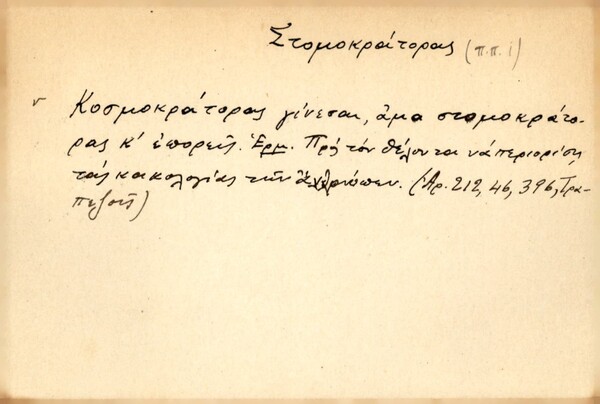 Στομοκράτορας (π.π. ι)
ν Κοσμοκράτορας γίνεσαι, ἅμα στομοκράτο-
ρας κ' ἐπορεῖς. Ἑρμ. Πρὸς τὸν θέλοντα νὰ περιορίσῃ
τὰς κακολογίας τῶν ἀνθρώπων. (Ἀρ. 212, 46, 396, Τρα-
πεζοῦς)